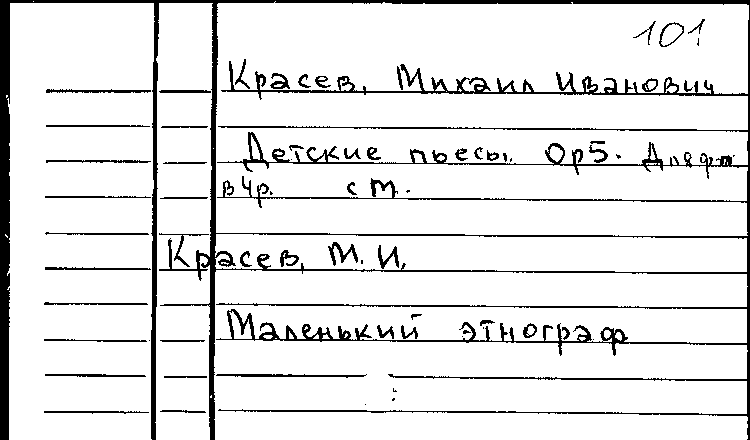 101
Красев, Михаил Иванович
Детские пьесы. Ор5. Для фп
в 4р. см.
Красев, М. И.
Маленький этнограф